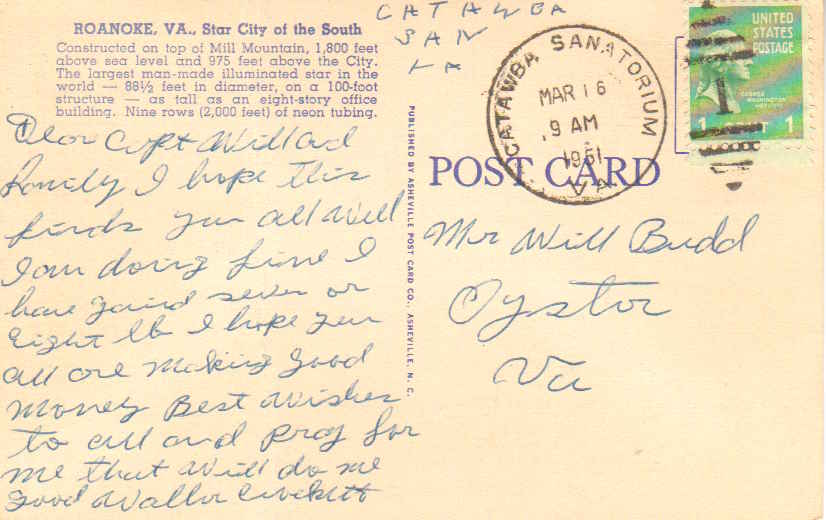 ROANOKE, VA., Star City of the South
Constructed on top of Mill Mountain, 1,800 feet
above sea level and 975 feet above the City.
The largest man-made illuminated star in the
world — 88½ feet in diameter, on a 100-foot
structure — as tall as an eight-story office
building. Nine rows (2,000 feet) of neon tubing.
CATAWBA
SAN
VA
CATAWBA SANATORIUM
MAR 16
9 AM
1961
VA
UNITED
STATES
POSTAGE
GEORGE
WASHINGTON
1 CENT 1
Dear Capt Willard
Family I hope this
finds you all Well
I am doing fine I
have gaind seven or
Eight lb I hope you
all are Making good
Money Best Wishes
to all and Pray for
me that Will do me
good Walter Crockett
PUBLISHED BY ASHEVILLE POST CARD CO., ASHEVILLE, N. C.
POST CARD
Mr Will Budd
Oyster
Va